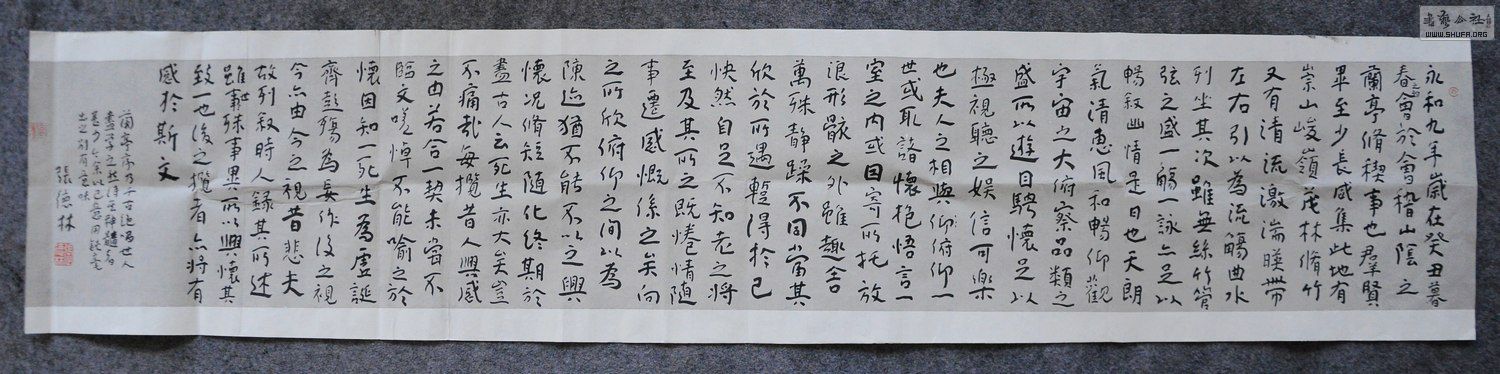 永和九年歲在癸丑暮
春之初會於會稽山陰之
蘭亭脩禊事也羣賢
畢至少長咸集此地有
崇山峻嶺茂林脩竹
又有清流激湍暎帶
左右引以為流觴曲水
列坐其次雖無絲竹管
弦之盛一觴一詠亦足以
暢敘幽情是日也天朗
氣清惠風和暢仰觀
宇宙之大俯察品類之
盛所以遊目騁懷足以
極視聽之娛信可樂
也夫人之相與仰俯仰一
世或取諸懷抱悟言一
室之內或因寄所托放
浪形骸之外雖趣舍
萬殊靜躁不同當其
欣於所遇蹔得於己
快然自足不知老之將
至及其所之既惓情隨
事遷感慨係之矣向
之所欣俯仰之間以為
陳迹猶不能不以之興
懷況脩短隨化終期於
盡古人云死生亦大矣豈
不痛哉每攬昔人興感
之由若合一契未嘗不
臨文嗟悼不能喻之於
懷固知一死生為虛誕
齊彭殤為妄作後之視
今亦由今之視昔悲夫
故列敘時人錄其所述
雖世殊事異所以興懷其
致一也後之攬者亦將有
感於斯文
蘭亭序乃千古絕唱世人
盡學之然得其神髓者
甚少余以己意
出之別有意味
張德林
書藝公社
WWW.SHUFA.ORG